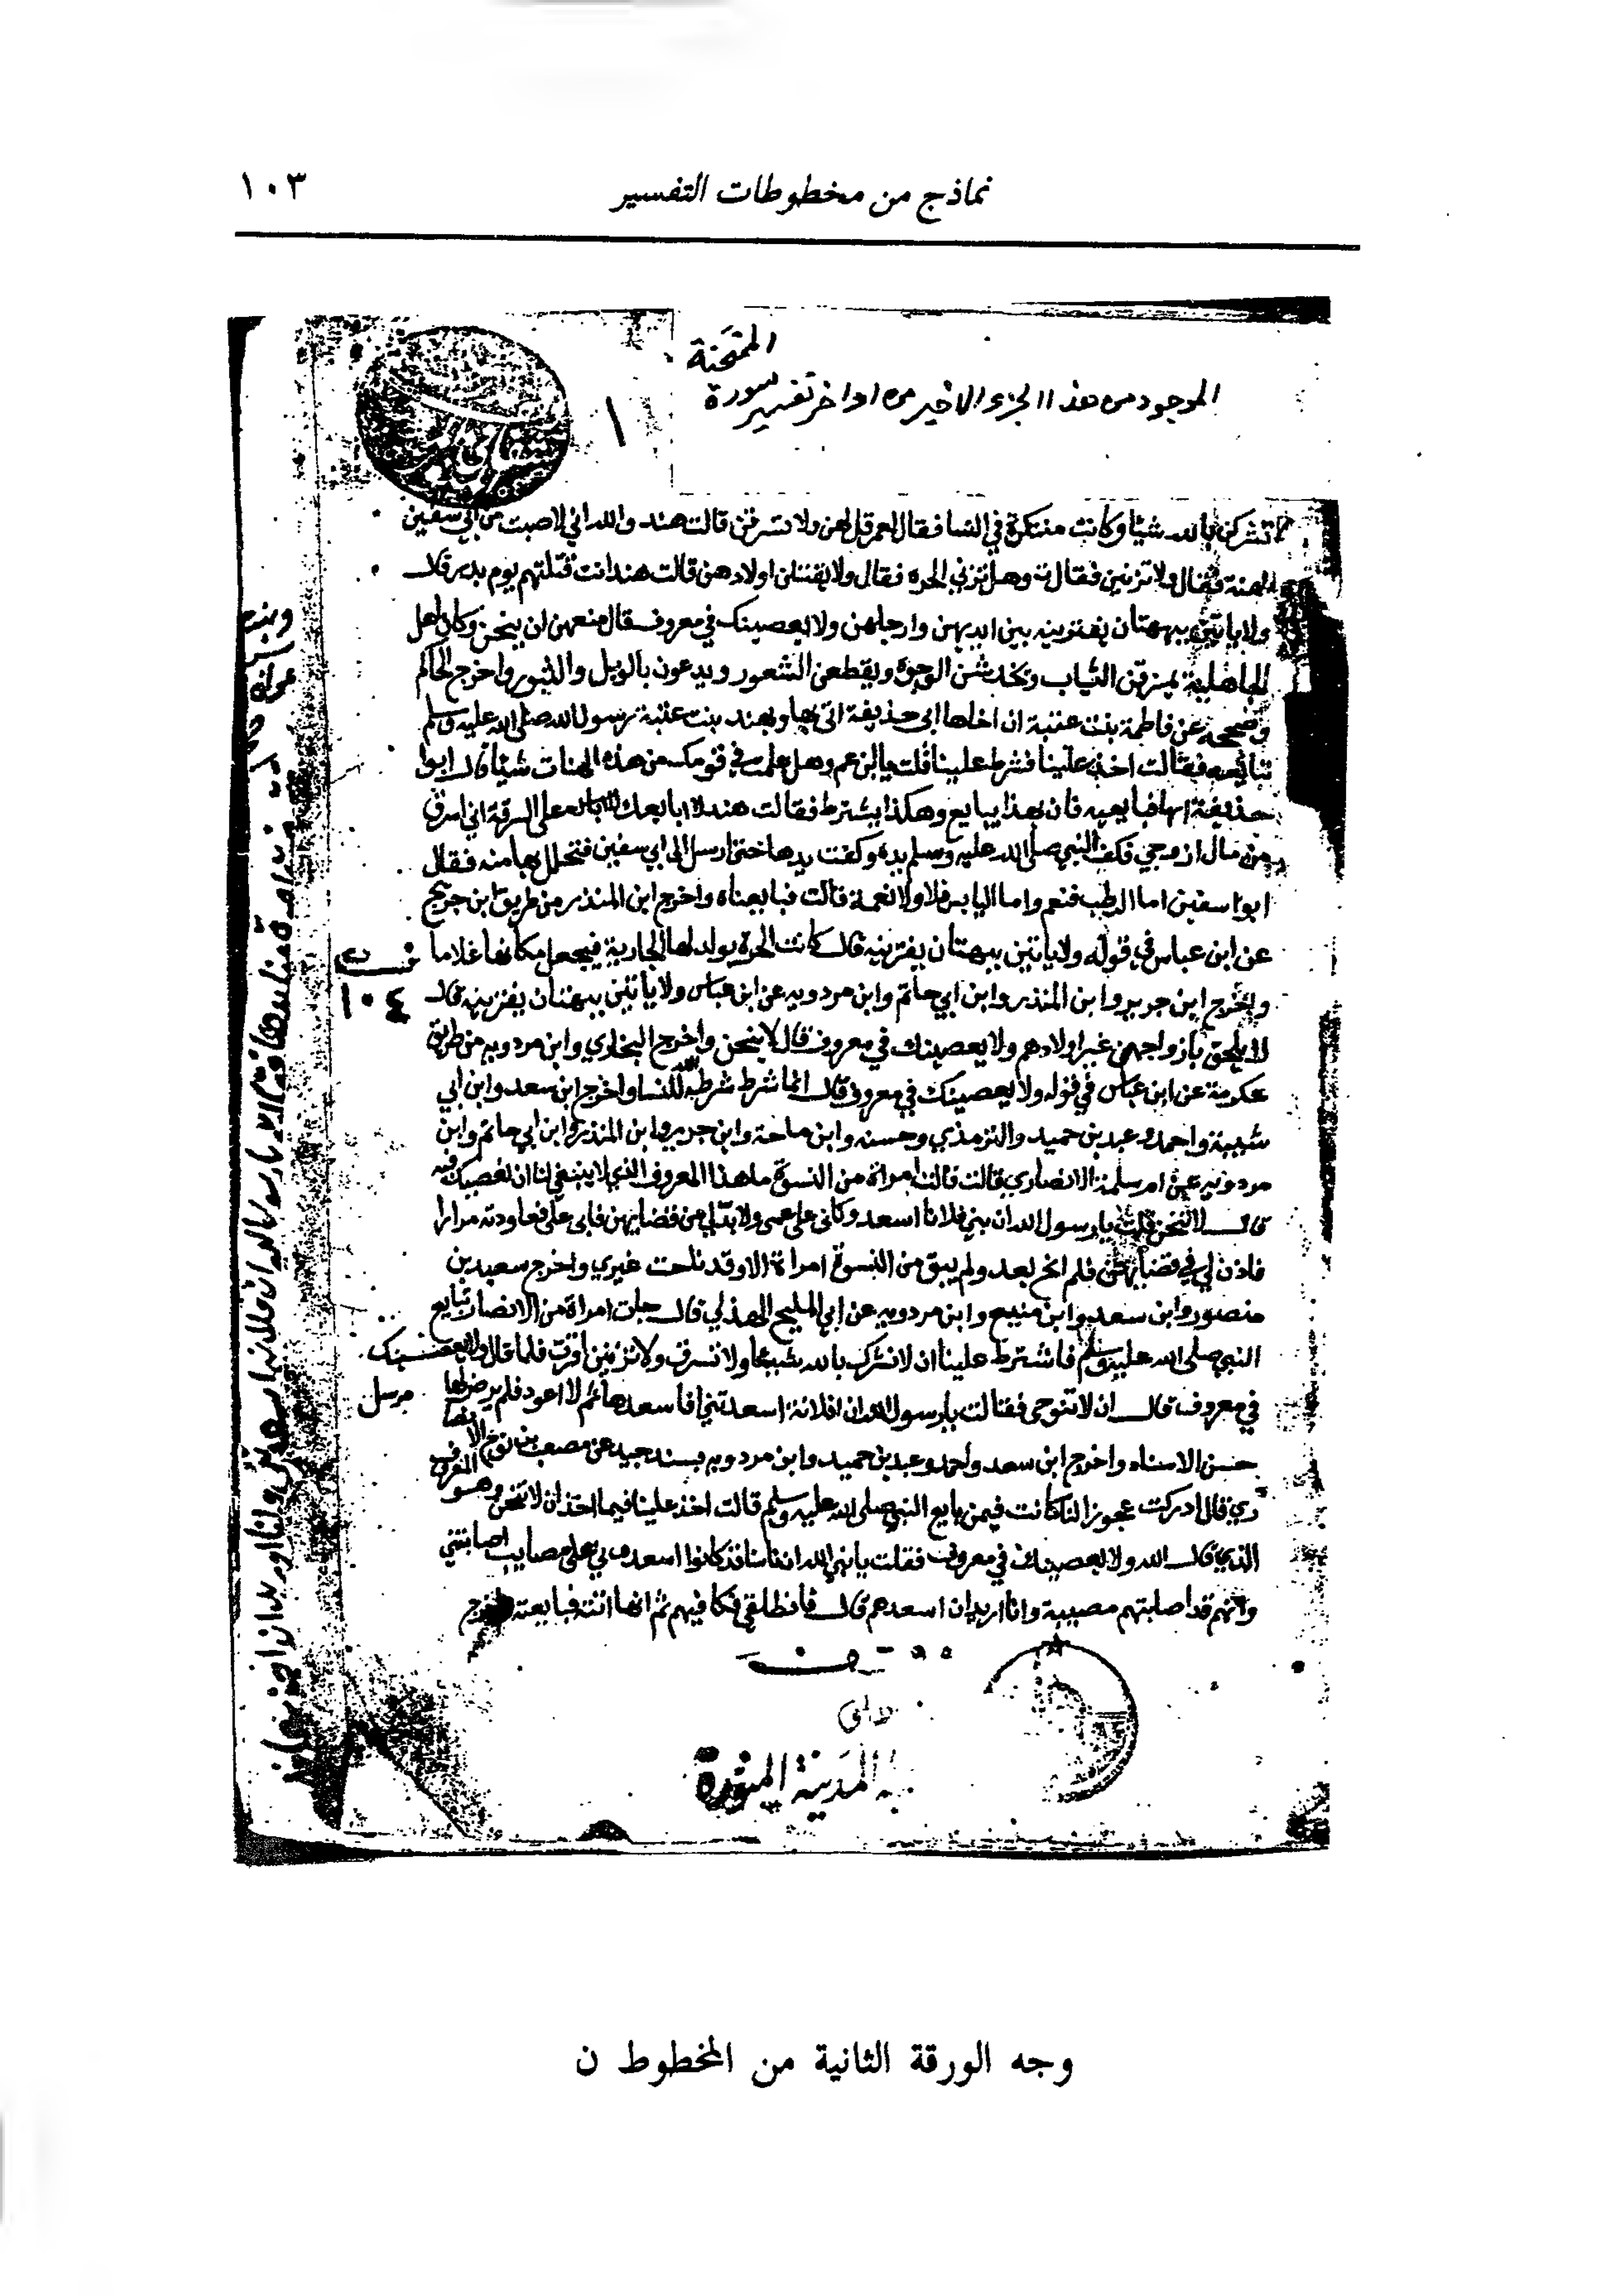 نماذج من مخطوطات التفسير
١٠٣
الممتحنة
الموجود من هذا الجزء الاخير من اواخر تفسير سورة
١
تشركن بالله شيئا وكانت متنكرة في النسا فقال لعمر قل لهن ولا تسرقن قالت هند والله اني لاصبت من ابي سفين
الهنة فقال ولا تزنين فقالت وهل تزني الحرة فقال ولا يقتلن اولادهن قالت هند انت قتلتهم يوم بدر قال
ولا ياتين ببهتان يفترينه بين ايديهن وارجلهن ولا يعصينك في معروف قال منعهن ان ينحن وكان اهل
الجاهلية يمزقن الثياب ويخدشن الوجوه ويقطعن الشعور ويدعون بالويل والثبور واخرج الحاكم
وصححه عن فاطمة بنت عتبة ان اخاها ابى حذيفة اتى بها وبهند بنت عتبة رسول الله صلى الله عليه وسلم
تبايعه فقالت اخذ علينا فشرط علينا قلت يا ابن عم وهل علمت في قومك من هذه الهنات شيئا قال ابوا
حذيفة ايها فبايعيه فان بهذا يبايع وهكذا يشترط فقالت هند لا ابايعك على السرقة اني اسرق
من مال زوجي فكف النبي صلى الله عليه وسلم يده وكفت يدها حتى ارسل الى ابي سفين فتحلل لها منه فقال
ابوا سفين اما الرطب فنعم واما اليابس فلا ولا نعمة قالت فبايعناه واخرج ابن المنذر من طريق ابن جريج
عن ابن عباس في قوله ولا ياتين ببهتان يفترينه قال كانت الحرة يولد لها الجارية فيجعل مكانها غلاما
واخرج ابن جرير وابن المنذر وابن ابي حاتم وابن مردويه عن ابن عباس ولا ياتين ببهتان يفترينه قال
١٠٤
لا يلحقن بازواجهن غير اولادهم ولا يعصينك في معروف قال لا ينحن واخرج البخاري وابن مردويه من طريق
عكرمة عن ابن عباس في قوله ولا يعصينك في معروف قال انما شرط شرطه الله للنسا واخرج ابن سعد وابن ابي
شيبة واحمد وعبد بن حميد والترمذي وحسنه وابن ماجة وابن جرير وابن المنذر وابن ابي حاتم وابن
مردويه عن ام سلمة الانصاري قالت قالت امراة من النسوة ما هذا المعروف الذي لا ينبغي لنا ان نعصيك فيه
قال لا تنحن قلت يا رسول الله ان بني فلان اسعدوكاني على عمي ولا بد لي من قضايهن فابى علي فعاودته مرارا
فاذن لي في قضايهن فلم انح بعد ولم يبق من النسوة امراة الا وقد ناحت غيري واخرج سعيد بن
منصور وابن سعد وابن منيع وابن مردويه عن ابي المليح الهذلي قال جات امراة من الانصار تبايع
النبي صلى الله عليه وسلم فاشترط علينا ان لا تشرك بالله شيئا ولا تسرق ولا تزنين اقرت فلما قال ولا يعصينك
في معروف قال ان لا تنوحي فقالت يا رسول الله ان فلانة اسعدتني افاسعدها ثم لا اعود فلم يرخص لها مرسل
حسن الاسناد واخرج ابن سعد واحمد وعبد بن حميد وابن مردويه بسند جيد عن مصعب بن نوح الانصا
ري قال ادركت عجوزا لنا كانت فيمن بايع النبي صلى الله عليه وسلم قالت اخذ علينا فيما اخذ ان لا تنحن وهو المعروف
الذي قال الله ولا يعصينك في معروف فقلت يا نبي الله ان ناسا قد كانوا اسعدوني على مصايب اصابتني
وانهم قد اصابتهم مصيبة وانا اريد ان اسعدهم قال فانطلقي فكافيهم ثم انها اتته فبايعته واخرج
المدينة المنورة
وجه الورقة الثانية من المخطوط ن